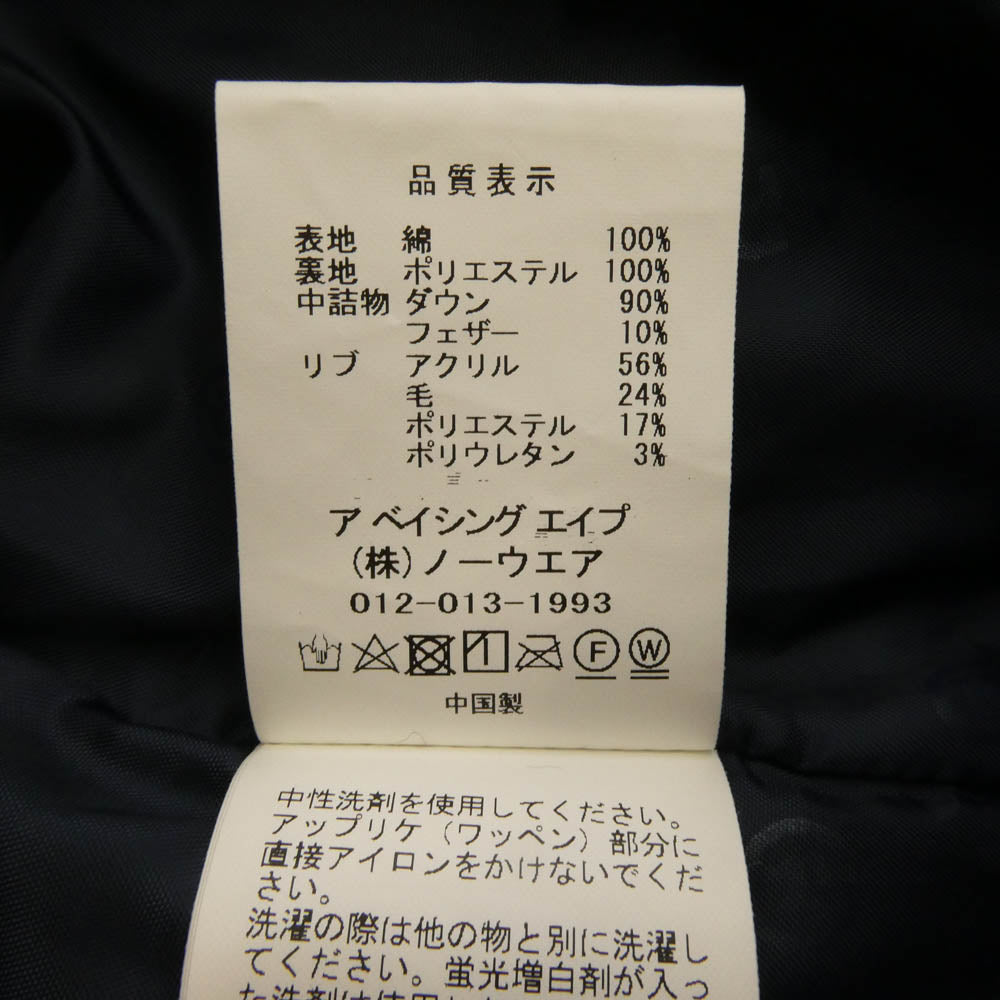 品質表示
表地 綿 100%
裏地 ポリエステル 100%
中詰物 ダウン 90%
フェザー 10%
リブ アクリル 56%
毛 24%
ポリエステル 17%
ポリウレタン 3%
ア ベイシング エイプ
(株)ノーウエア
012-013-1993
F W
中国製
中性洗剤を使用してください。
アップリケ（ワッペン）部分に
直接アイロンをかけないでくだ
さい。
洗濯の際は他の物と別に洗濯し
てください。蛍光増白剤が入っ
た洗剤は使用し